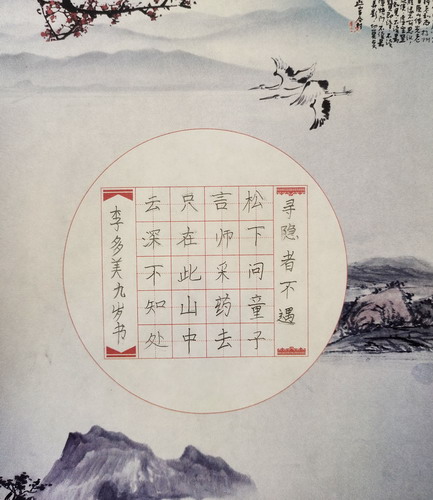 寻隐者不遇
松下问童子
言师采药去
只在此山中
云深不知处
李多美九岁书